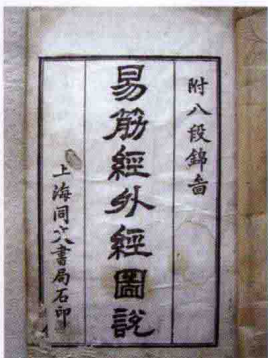 附八段錦啚
易筋經外經圖說
上海同文書局石印